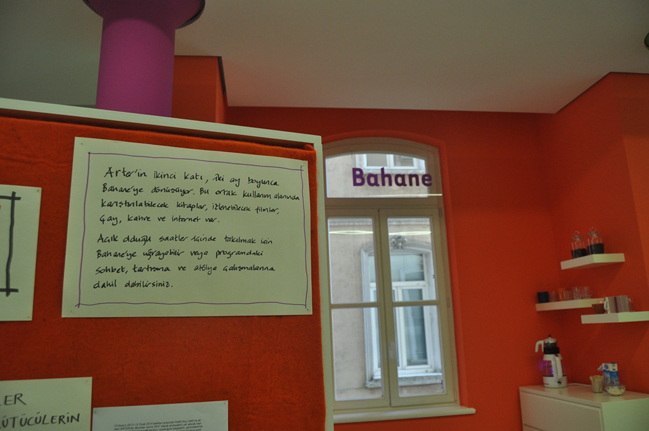 Bahane
Arter'in ikinci katı, iki ay boyunca
Bahane'ye dönüşüyor. Bu ortak kullanım alanında
karıştırılabilecek kitaplar, izlenebilecek filmler,
çay, kahve ve internet var.
Açık olduğu saatler içinde takılmak için
Bahane'ye uğrayabilir veya programdaki
sohbet, tartışma ve atölye çalışmalarına
dahil olabilirsiniz.
LER
ÜTÜCÜLERİN